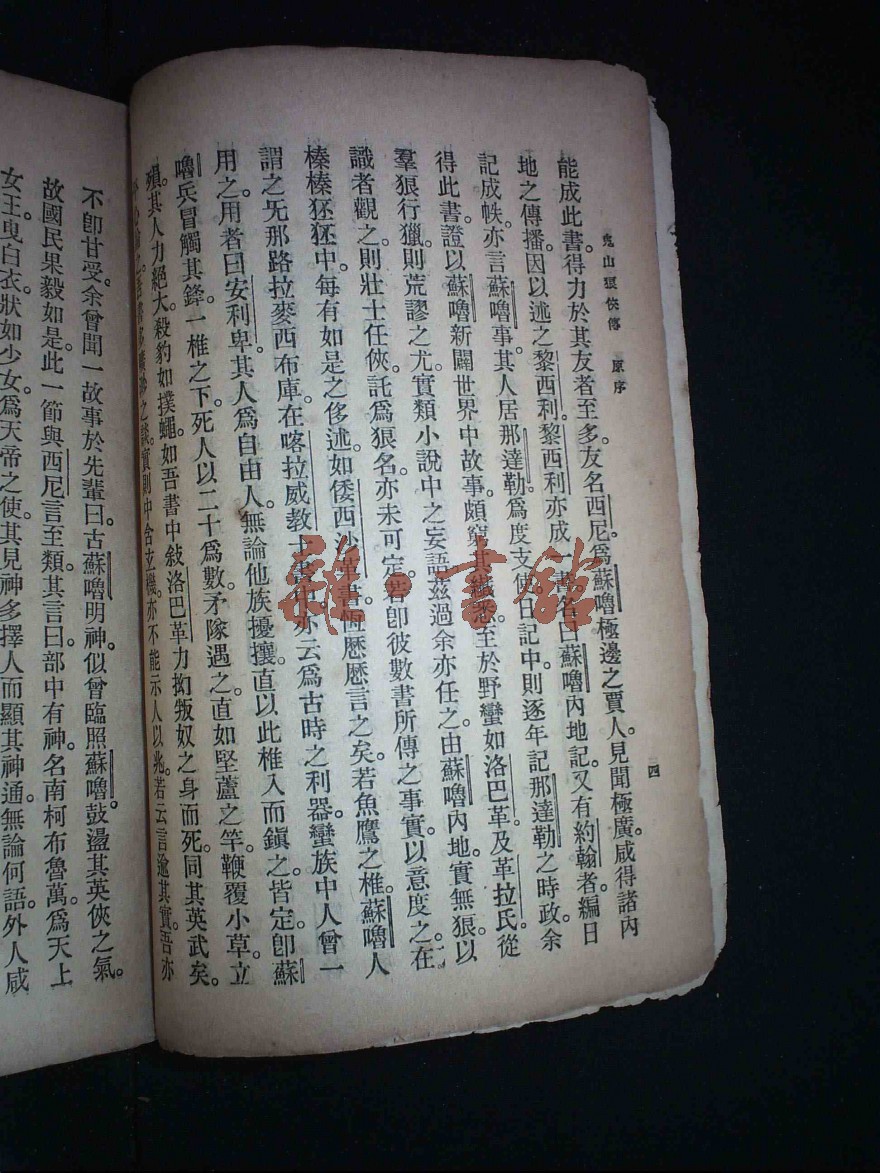 鬼山狼俠傳 原序
四
能成此書。得力於其友者至多。友名西尼。爲蘇嚕極邊之賈人。見聞極廣。咸得諸內
地之傳播。因以述之黎西利。黎西利亦成一書。名曰蘇嚕內地記。又有約翰者。編日
記成帙。亦言蘇嚕事。其人居那達勒爲度支使。日記中。則逐年記那達勒之時政。余
得此書。證以蘇嚕新闢世界中故事。頗窮其纖悉。至於野蠻如洛巴革及革拉氏。從
羣狼行獵。則荒謬之尤。實類小說中之妄語。茲過余亦任之。由蘇嚕內地。實無狼。以
識者觀之。則壯士任俠。託爲狼名。亦未可定。若卽彼數書所傳之事實。以意度之。在
榛榛狉狉中。每有如是之侈述。如倭西沙革書。恆歷歷言之矣。若魚鷹之椎。蘇嚕人
謂之旡那路拉麥西布庫。在喀拉威教士書中。亦云爲古時之利器。蠻族中人曾一
用之。用者曰安利卑。其人爲自由人。無論他族擾攘。直以此椎入而鎭之。皆定。卽蘇
嚕兵冒觸其鋒。一椎之下。死人以二十爲數。矛隊遇之。直如堅蘆之竿。鞭覆小草。立
殞。其人力絕大。殺豹如撲蠅。如吾書中敍洛巴革力拗叛奴之身而死。同其英武矣。
之談。實則中含玄機。亦不能示人以兆。若云言逾其實。吾亦
不卽甘受。余曾聞一故事於先輩曰。古蘇嚕明神。似曾臨照蘇嚕。鼓盪其英俠之氣。
故國民果毅如是。此一節與西尼言至類。其言曰。部中有神。名南柯布魯萬。爲天上
女王。曳白衣。狀如少女。爲天帝之使。其見神多擇人而顯其神通。無論何語。外人咸
雜·書館